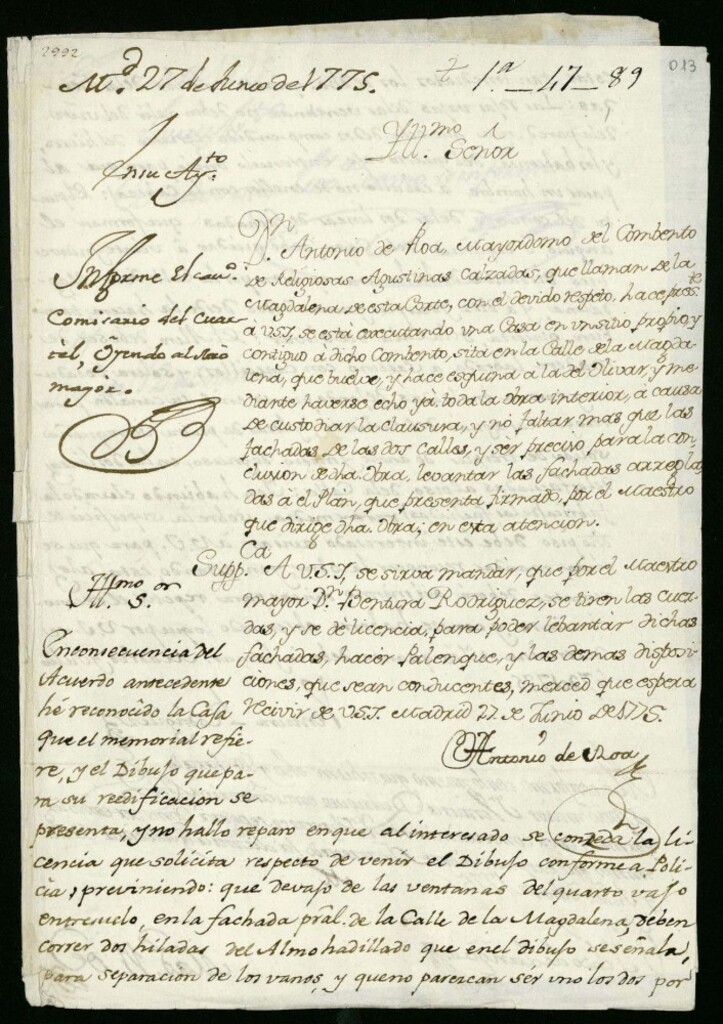 2992
013
M.d 27 de Junio de 1775.
1.a – 47 – 89
Yllmo Señor
En su Ay.to
D.n Antonio de Roa, Mayordomo del Combento
de Religiosas Agustinas Calzadas, que llaman de la
Magdalena de esta Corte, con el devido respeto, hace pres.te
à V.S.I, se està executando vna Casa en vn sitio propio, y
contiguo à dicho Combento, sita en la Calle de la Magda
lena, que buelve, y hace esquina à la del Olivar, y me
diante haverse echo ya toda la obra interior, a causa
de custodiar la clausura, y nò faltar mas que las
fachadas de las dos Calles, y ser preciso para la con
clusion de dha. Obra, levantar las fachadas arregla
das à el Plàn, que presenta firmado, por el Maestro
que dirige dha. Obra; en esta atencion.
Informe el cav.o
Comisario del Cuar
tèl, Oyendo al Mro
mayor.
Supp.Ca A V.S.I, se sirva mandàr, que por el Maestro
mayor D.n Bentura Rodriguez, se tiren las cuer
das, y se dè licencia, para poder lebantar dichas
fachadas, hacèr Palenque, y las demas disposi
ciones, que sean conducentes, merced que espera
recivir de V.S.I. Madrid 27 de Junio de 1775.
Antonio de Roa
Yllmo S.or
En consecuencia del
Acuerdo antecedente
hé reconocido la Casa
que el memorial refie
re, y el Dibujo que pa
ra su reedificacion se
presenta, y no hallo reparo en que al interesado se conzeda la li
cencia que solicita respecto de venir el Dibujo conforme a Poli
cia; previniendo: que devajo de las ventanas del quarto vajo
entresuelo, en la fachada pral. de la Calle de la Magdalena, deben
correr dos hiladas del Almohadillado que en el dibujo se señala,
para separacion de los vanos, y que no parezcan sér vno los dos por